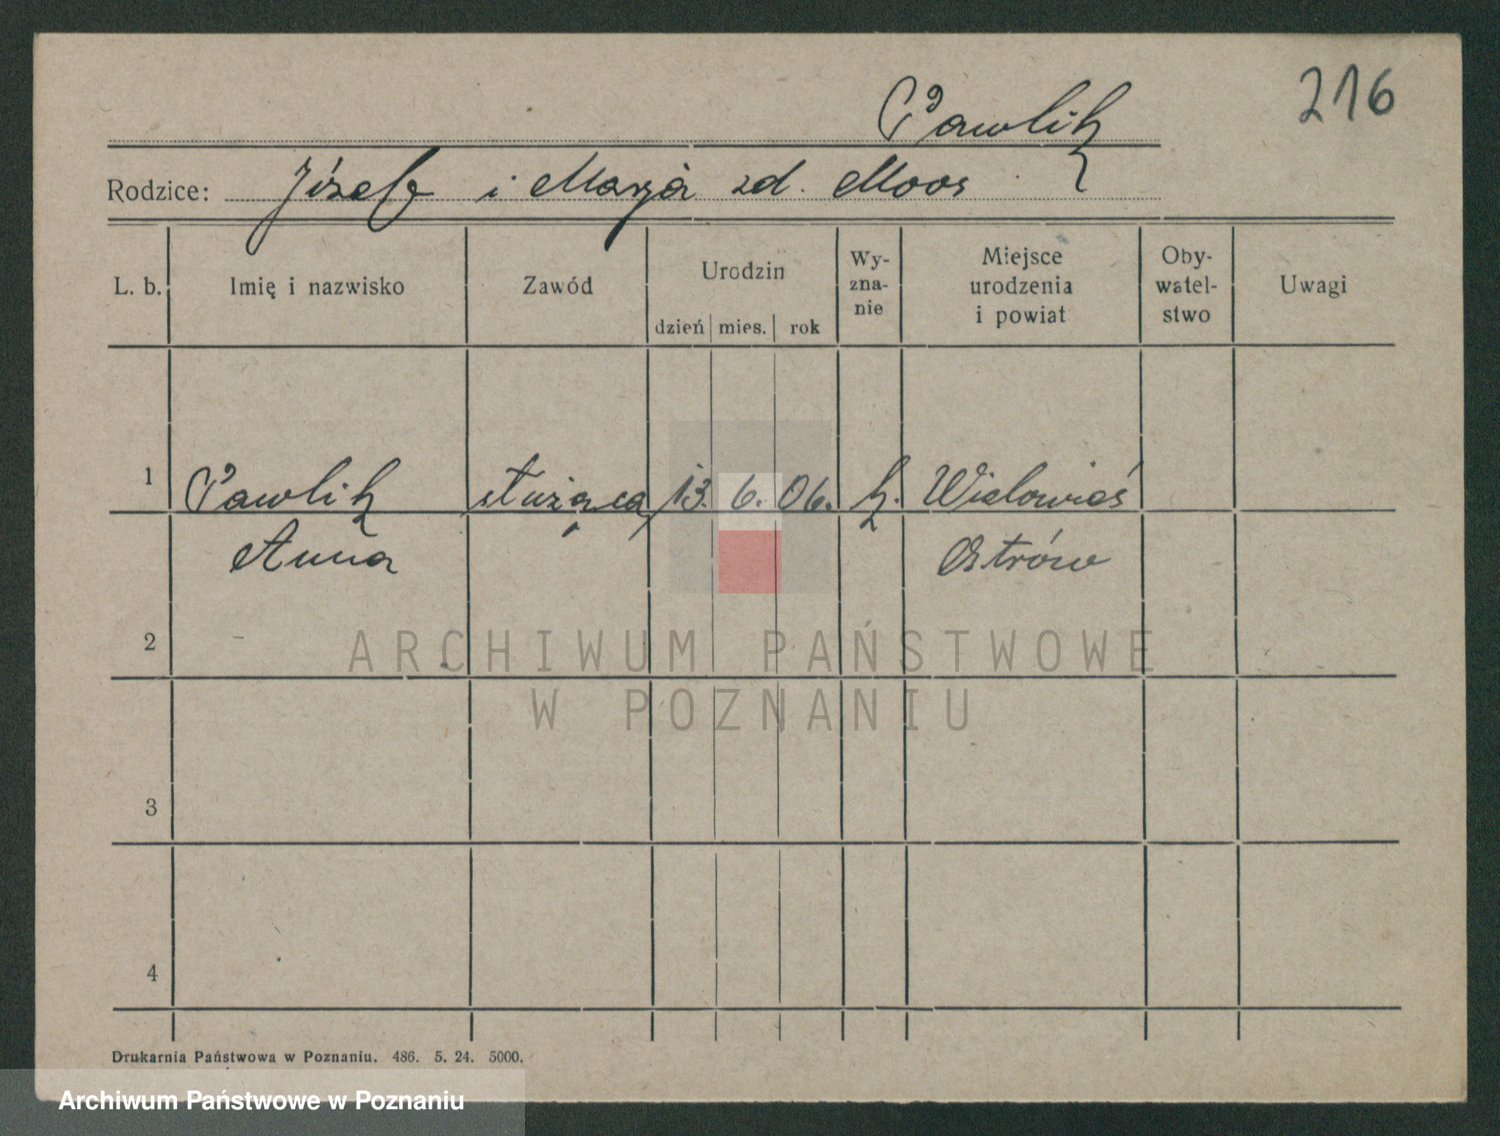 216
Pawlik
Rodzice: Józef i Marja zd. Moos
L. b.
Imię i nazwisko
Zawód
Urodzin
dzień mies. rok
Wy-
zna-
nie
Miejsce
urodzenia
i powiat
Oby-
watel-
stwo
Uwagi
1 Pawlik służąca 13. 6. 06. k. Wielowieś
Anna Ostrów
2
ARCHIWUM PAŃSTWOWE
W POZNANIU
3
4
Drukarnia Państwowa w Poznaniu. 486. 5. 24. 5000.
Archiwum Państwowe w Poznaniu